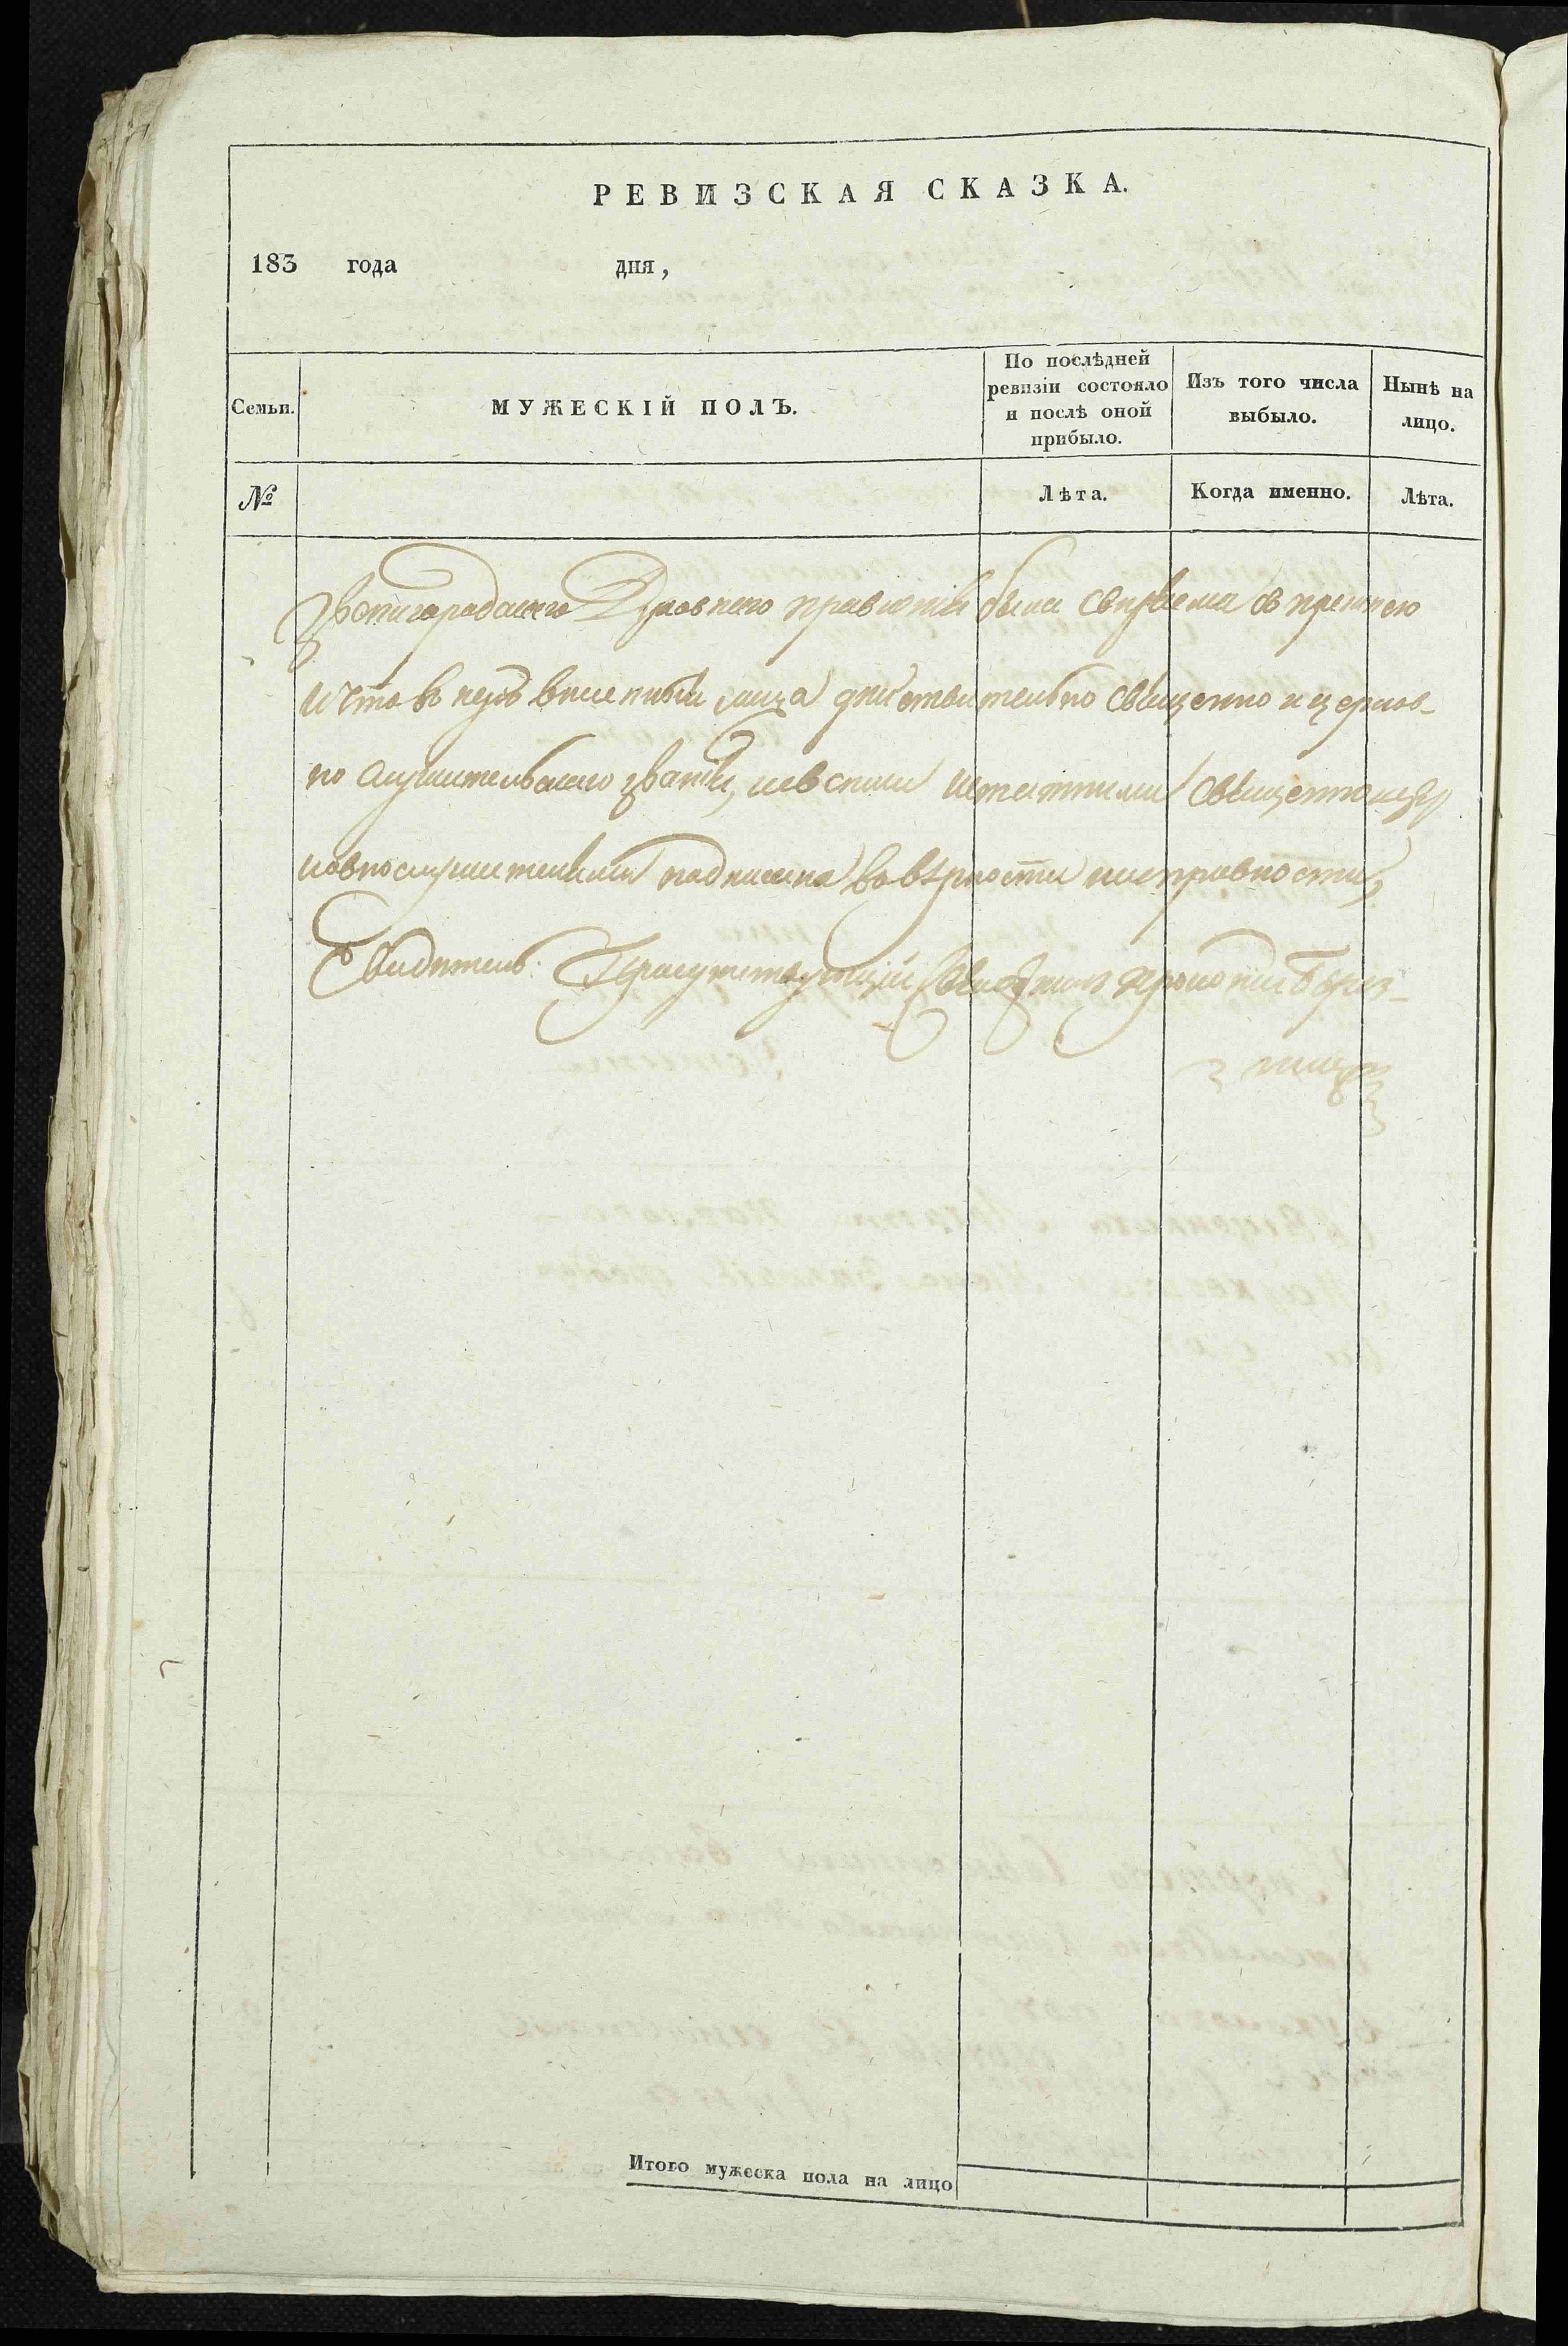 РЕВИЗСКАЯ СКАЗКА.
183 года дня,
Семьи.
МУЖЕСКІЙ ПОЛЪ.
По послѣдней
ревизіи состояло
и послѣ оной
прибыло.
Изъ того числа
выбыло.
Нынѣ на
лицо.
№
Лѣта.
Когда именно.
Лѣта.
Звенигородского Духовного правленія была свѣрена съ прежнею
и что в неѣ внесенныя лица действительно священно и церков-
но служительского званія, и всѣми штатными священно и цер
ковнослужителями подписана во вѣрности и исправности,
Свидѣтель: Присутствующій Священникъ Прокопій
Итого мужеска пола на лицо